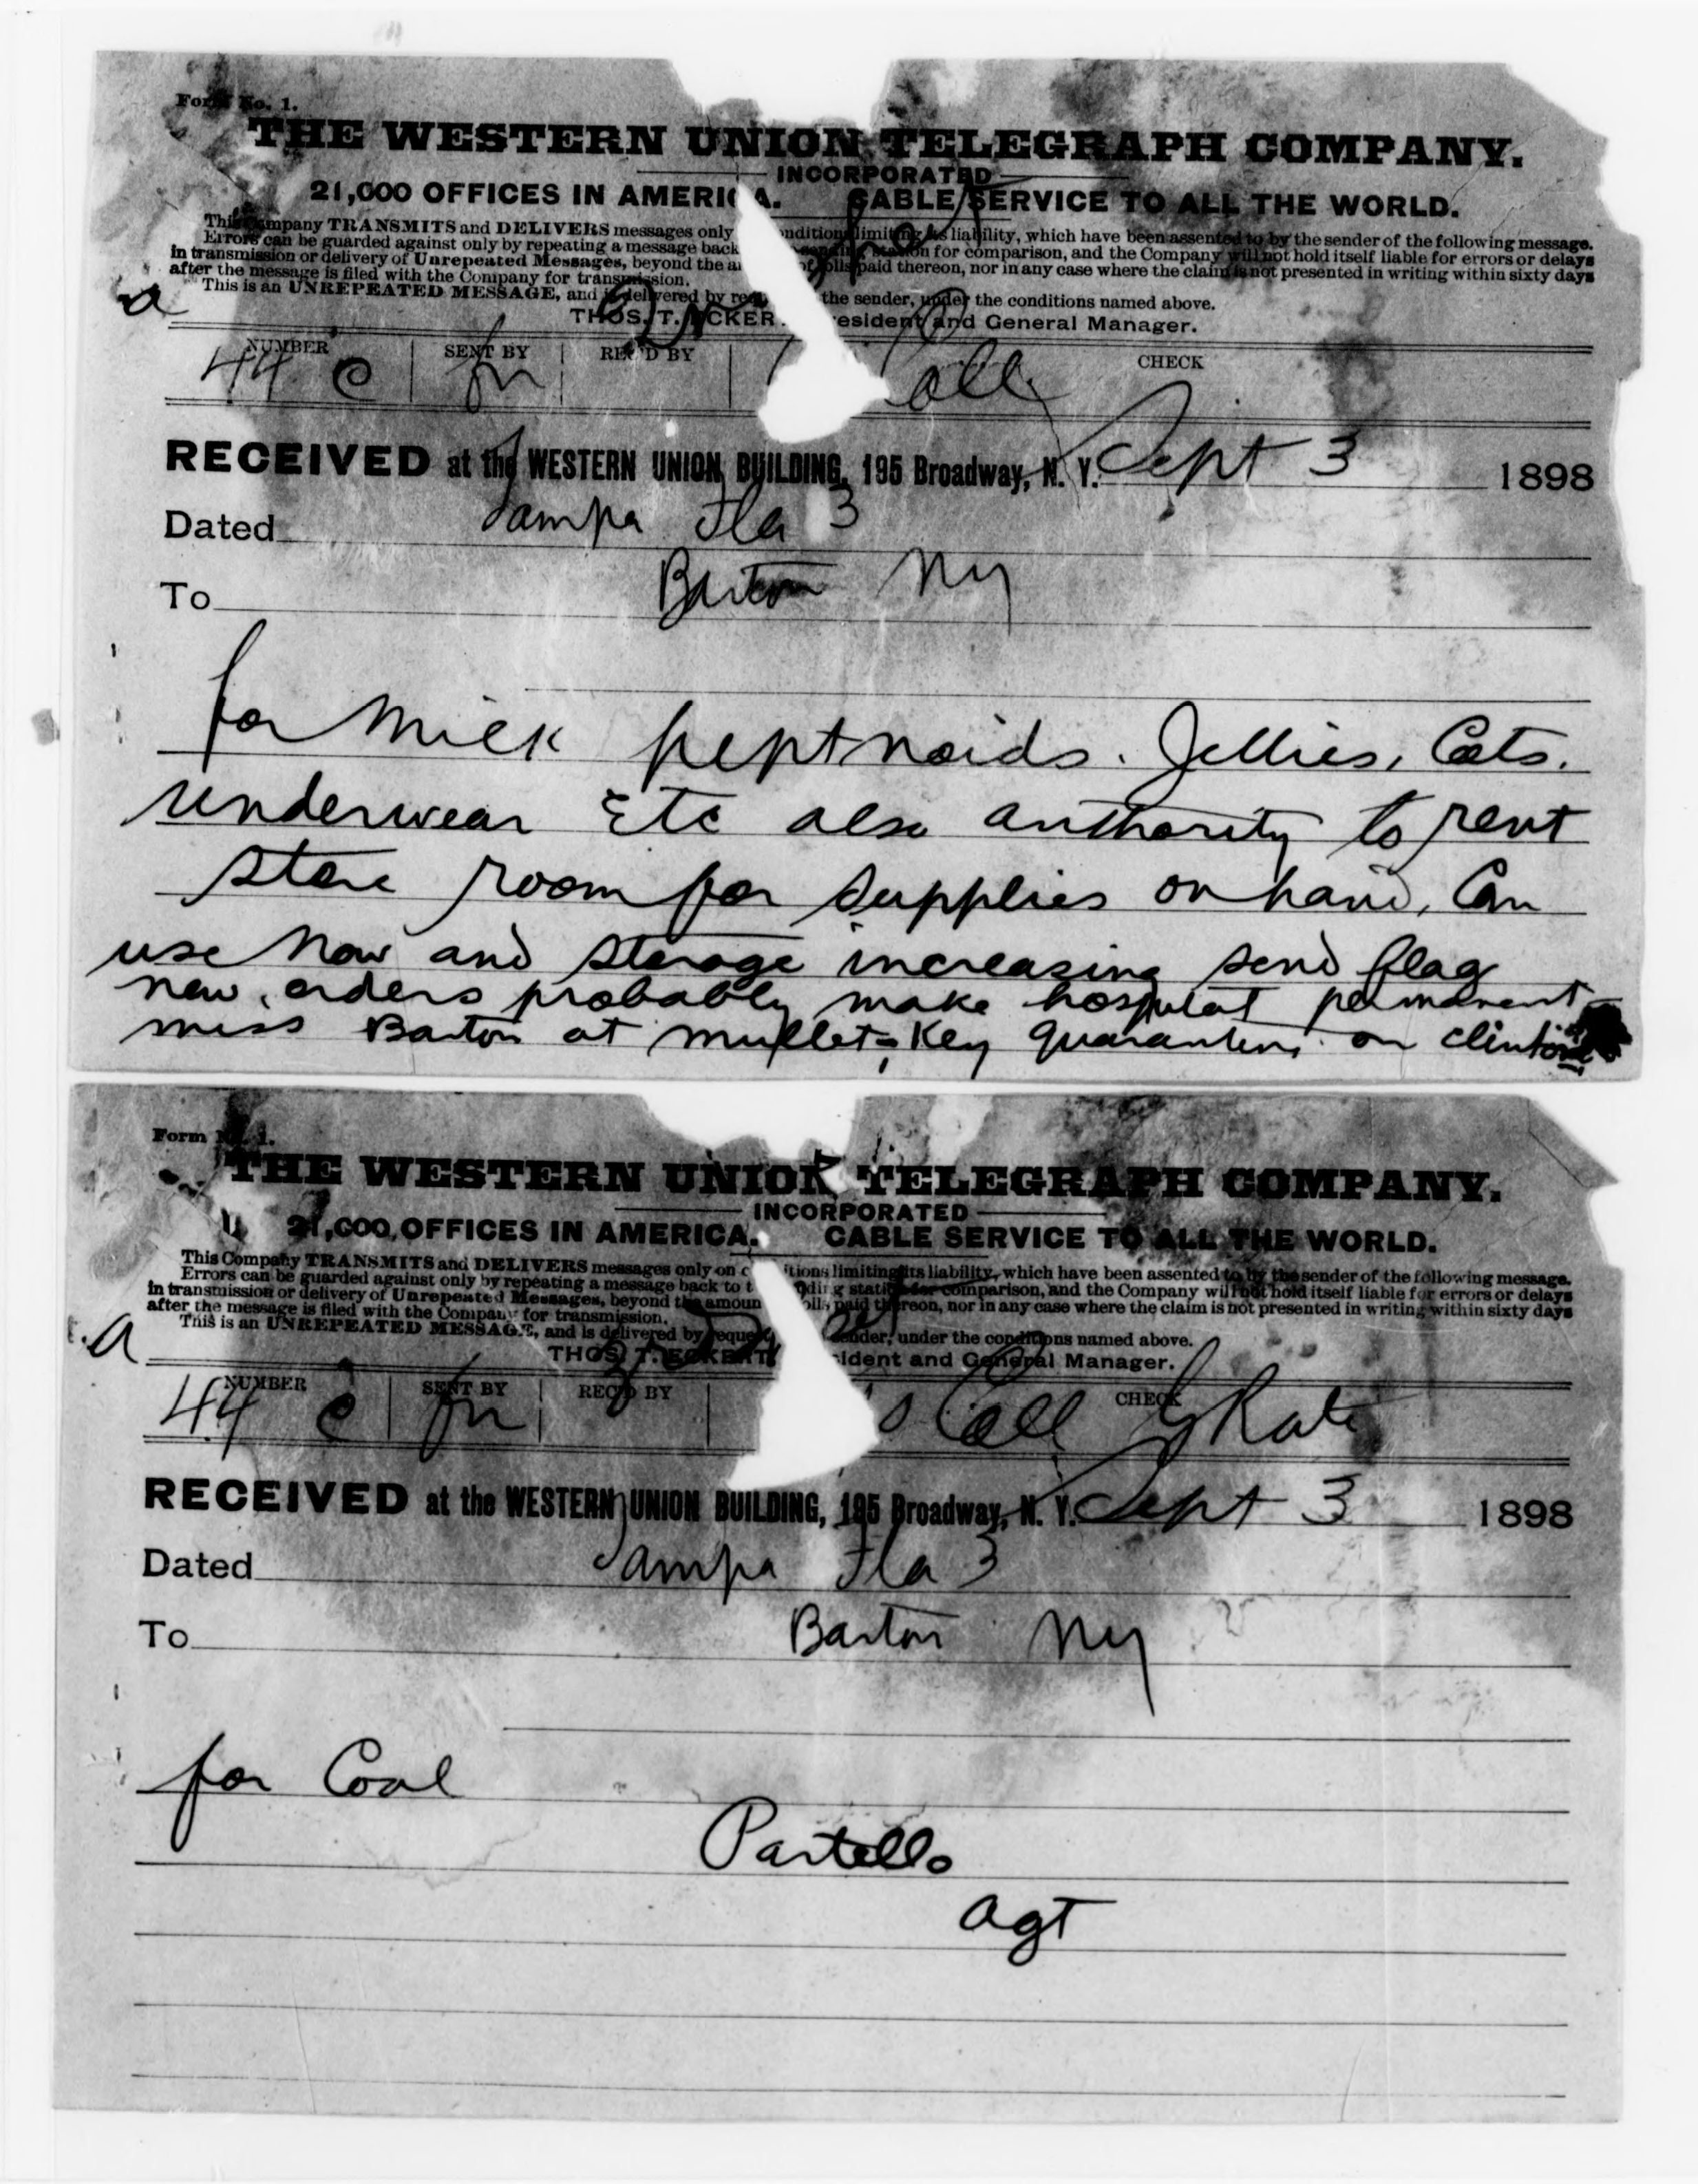 Form No. 1.
THE WESTERN UNION TELEGRAPH COMPANY.
INCORPORATED
21,000 OFFICES IN AMERICA. CABLE SERVICE TO ALL THE WORLD.
This Company TRANSMITS and DELIVERS messages only conditions limiting its liability, which have been assented to by the sender of the following message.
Errors can be guarded against only by repeating a message back sending station for comparison, and the Company will not hold itself liable for errors or delays
in transmission or delivery of Unrepeated Messages, beyond the of tolls paid thereon, nor in any case where the claim is not presented in writing within sixty days
after the message is filed with the Company for transmission.
This is an UNREPEATED MESSAGE, and is delivered by the sender, under the conditions named above.
a
THOS. T. ECKER President and General Manager.
NUMBER SENT BY REC'D BY CHECK
44 C fn Coll
RECEIVED at the WESTERN UNION BUILDING, 195 Broadway, N. Y. Sept 3 1898
Dated Tampa Fla 3
To Barton Ny
for milk peptnoids. Jellies, Cots.
underwear Etc also authority to rent
store room for supplies on hand, Can
use now and storage increasing send flag
new orders probably make hospital permanent
miss Barton at mullet Key quarantine on clinton
Form No. 1.
THE WESTERN UNION TELEGRAPH COMPANY.
INCORPORATED
21,000 OFFICES IN AMERICA. CABLE SERVICE TO ALL THE WORLD.
This Company TRANSMITS and DELIVERS messages only on conditions limiting its liability, which have been assented to by the sender of the following message.
Errors can be guarded against only by repeating a message back to sending station for comparison, and the Company will not hold itself liable for errors or delays
in transmission or delivery of Unrepeated Messages, beyond the amount tolls paid thereon, nor in any case where the claim is not presented in writing within sixty days
after the message is filed with the Company for transmission.
This is an UNREPEATED MESSAGE, and is delivered by request sender, under the conditions named above.
a
THOS. T. ECKERT President and General Manager.
NUMBER SENT BY REC'D BY CHECK
44 C fn Coll G Rate
RECEIVED at the WESTERN UNION BUILDING, 195 Broadway, N. Y. Sept 3 1898
Dated Tampa Fla 3
To Barton Ny
for Coal
Partello
agt